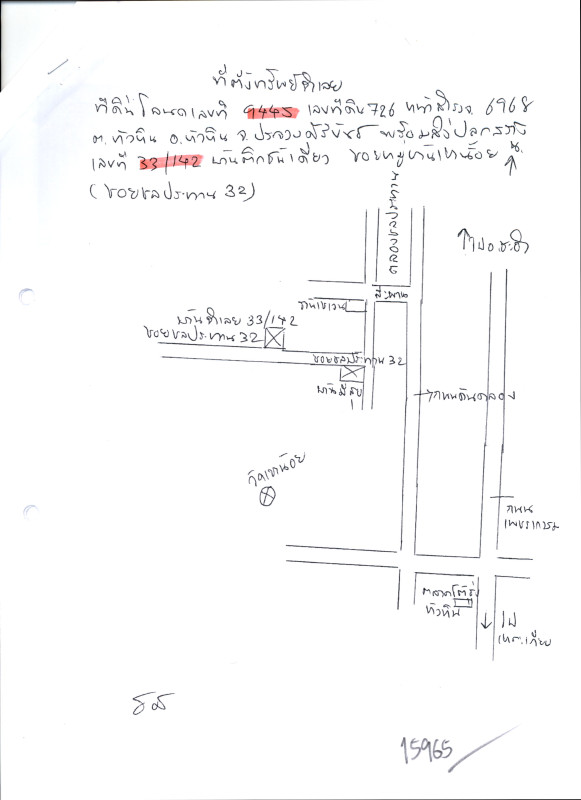 ที่ตั้งทรัพย์จำเลย
ที่ดิน โฉนดเลขที่ 9445 เลขที่ดิน 726 หน้าสำรวจ 6968
ต.หัวหิน อ.หัวหิน จ.ประจวบคีรีขันธ์ พร้อมสิ่งปลูกสร้าง
เลขที่ 33/142 บ้านตึกชั้นเดียว ซอยหมู่บ้านเขาน้อย
น.
(ซอยชลประทาน 32)
คลองชลประทาน
ไป อ.ชะอำ
สะพาน
บ้านจำเลย 33/142
ซอยชลประทาน 32
ซอยชลประทาน 32
ถนนคันคลอง
วัดเขาน้อย
ถนน
เพชรเกษม
ตลาดโต้รุ่ง
หัวหิน
ไป
15965